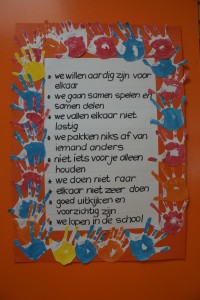 * we willen aardig zijn voor
elkaar
* we gaan samen spelen en
samen delen
* we vallen elkaar niet
lastig
* we pakken niks af van
iemand anders
* niet iets voor je alleen
houden
* we doen niet raar
* elkaar niet zeer doen
* goed uitkijken en
voorzichtig zijn
* we lopen in de school